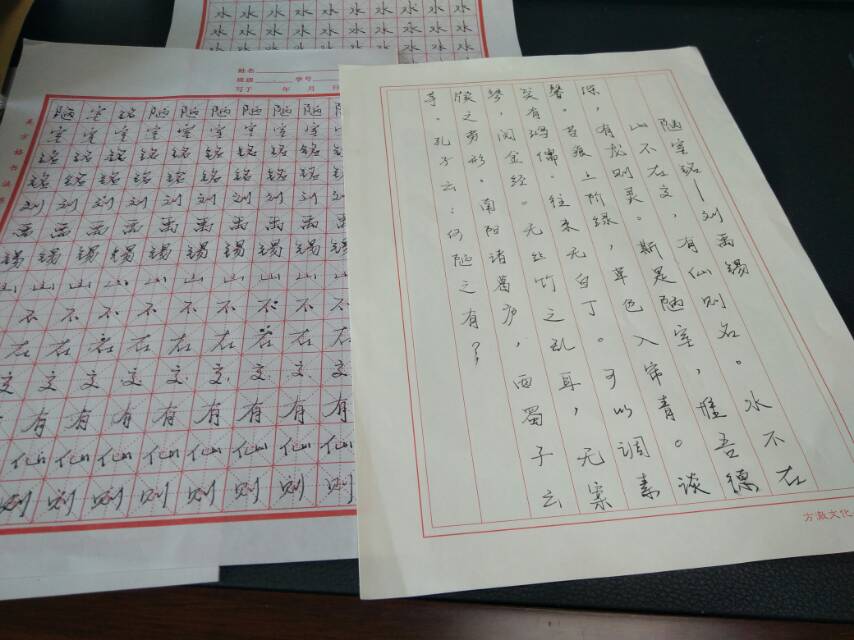 水 水 水 水 水 水 水 水
水 水 水 水 水 水 水 水
水 水 水 水 水 水 水
姓名
班级 学号
写了 年 月
陋 室 铭 陋 陋 陋 陋 陋
室 室 室 室 室 室 室 室
铭 铭 铭 铭 铭 铭 铭 铭
铭 铭 铭 铭 铭 铭 铭 铭
刘 刘 刘 刘 刘 刘 刘 刘
禹 禹 禹 禹 禹 禹 禹 禹
锡 锡 锡 锡 锡 锡 锡 锡
山 山 山 山 山 山 山 山
不 不 不 不 不 不 不
在 在 在 在 在 在 在 在
高 高 高 高 高 高 高 高
有 有 有 有 有 有 有
仙 仙 仙 仙 仙 仙 仙 仙
则 则 则 则 则 则 则 则
陋室铭—刘禹锡
山不在高，有仙则名。水不在
深，有龙则灵。斯是陋室，惟吾德
馨。苔痕上阶绿，草色入帘青。谈
笑有鸿儒，往来无白丁。可以调素
琴，阅金经。无丝竹之乱耳，无案
牍之劳形。南阳诸葛庐，西蜀子云
亭。孔子云：何陋之有？